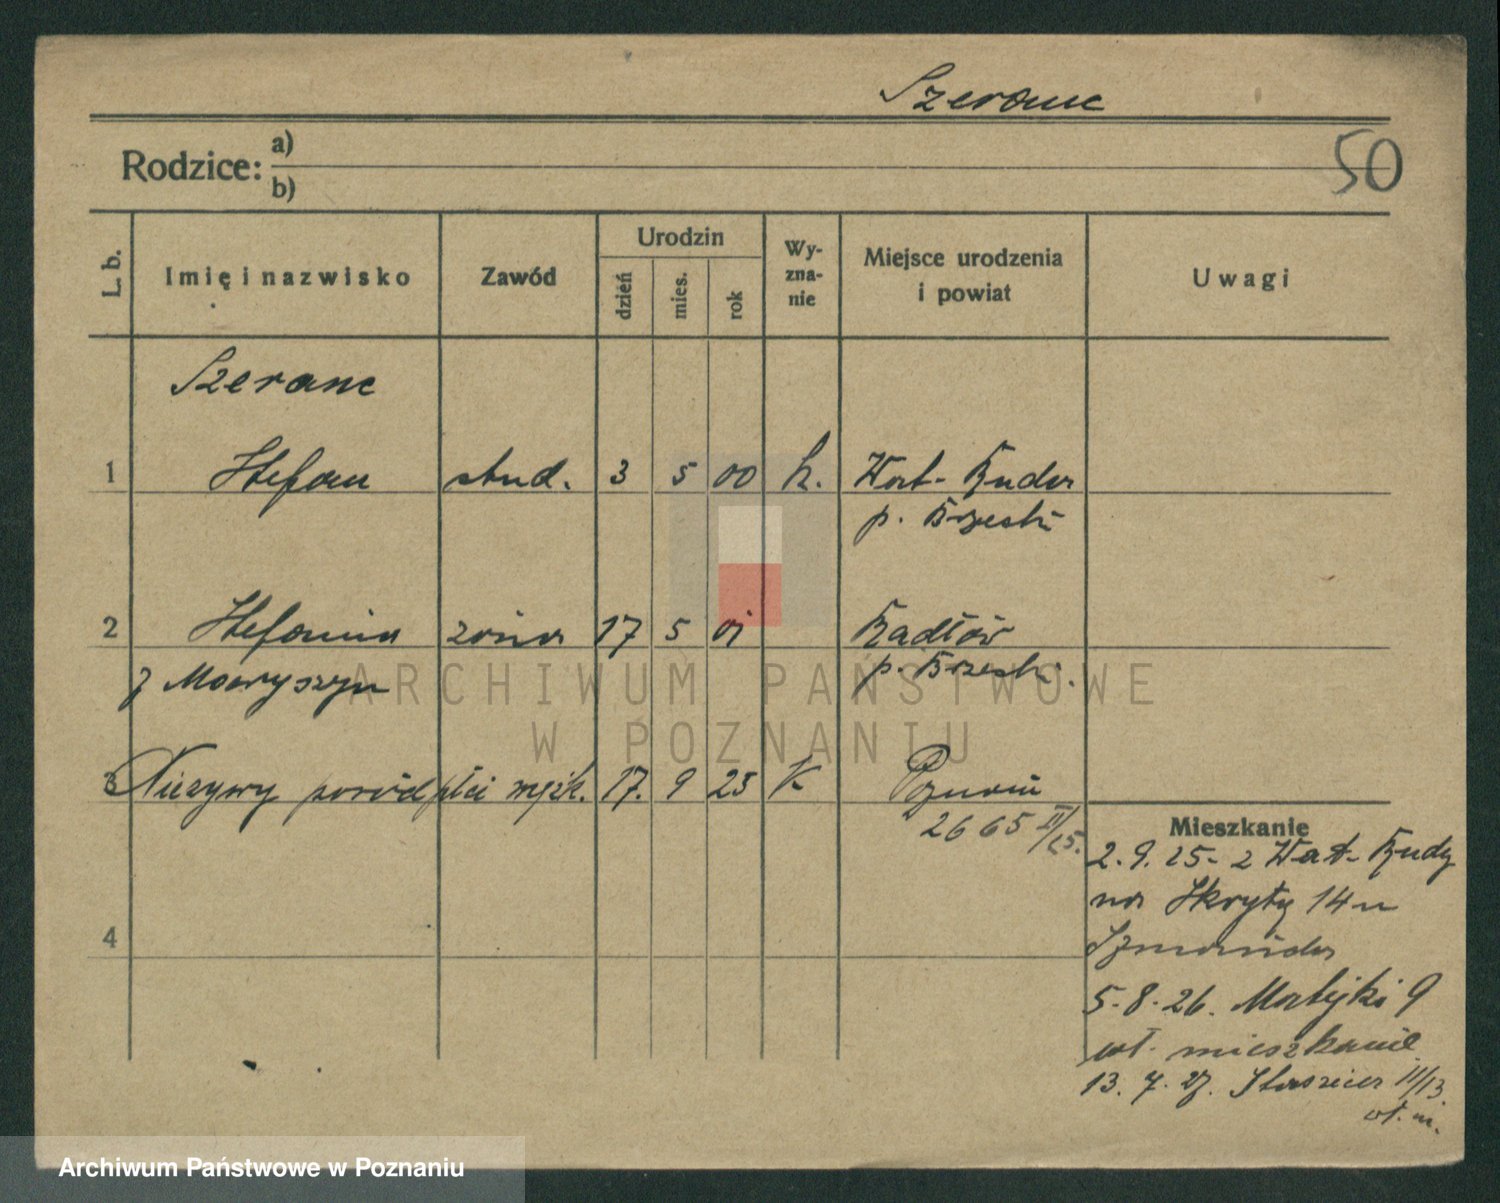 Szeranc
50
Rodzice: a)
b)
L. b.
Imię i nazwisko
Zawód
Urodzin
dzień
mies.
rok
Wy-
zna-
nie
Miejsce urodzenia
i powiat
Uwagi
Szeranc
1 Stefan stud. 3 5 00 k. Wat-Ruda
p. Brzesk
2 Stefania żona 17 5 01 Radłów
z Mazryszyn p. Brzesk.
3 Nieżywy poród płci męzk. 17. 9 25 K Poznań
2665 II/25.
4
Mieszkanie
2.9.25 - z Wat-Rudy
na Skrytą 14 u
Szmańda
5.8.26. Matejki 9
wł. mieszkanie
13.7.27. Staszica 11/13.
wł. m.
ARCHIWUM PAŃSTWOWE
W POZNANIU
Archiwum Państwowe w Poznaniu